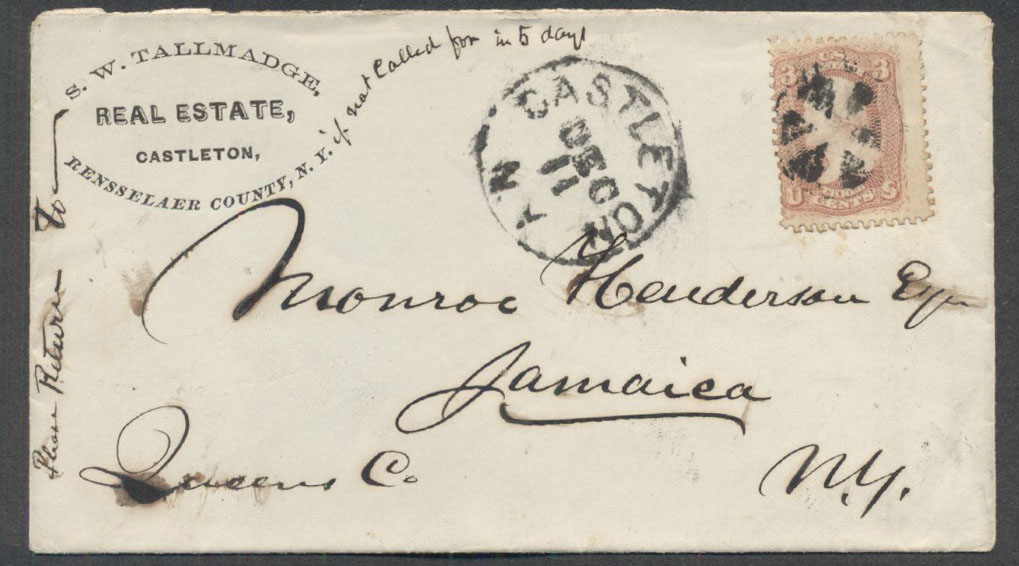 S. W. TALLMADGE,
REAL ESTATE,
CASTLETON,
RENSSELAER COUNTY, N. Y.
Please Return to
if not Called for in 5 days
CASTLETON
N Y
DEC
11
3 3
U S
CENTS
Monroe Henderson Esqr
Jamaica
Queens Co.
N.Y.